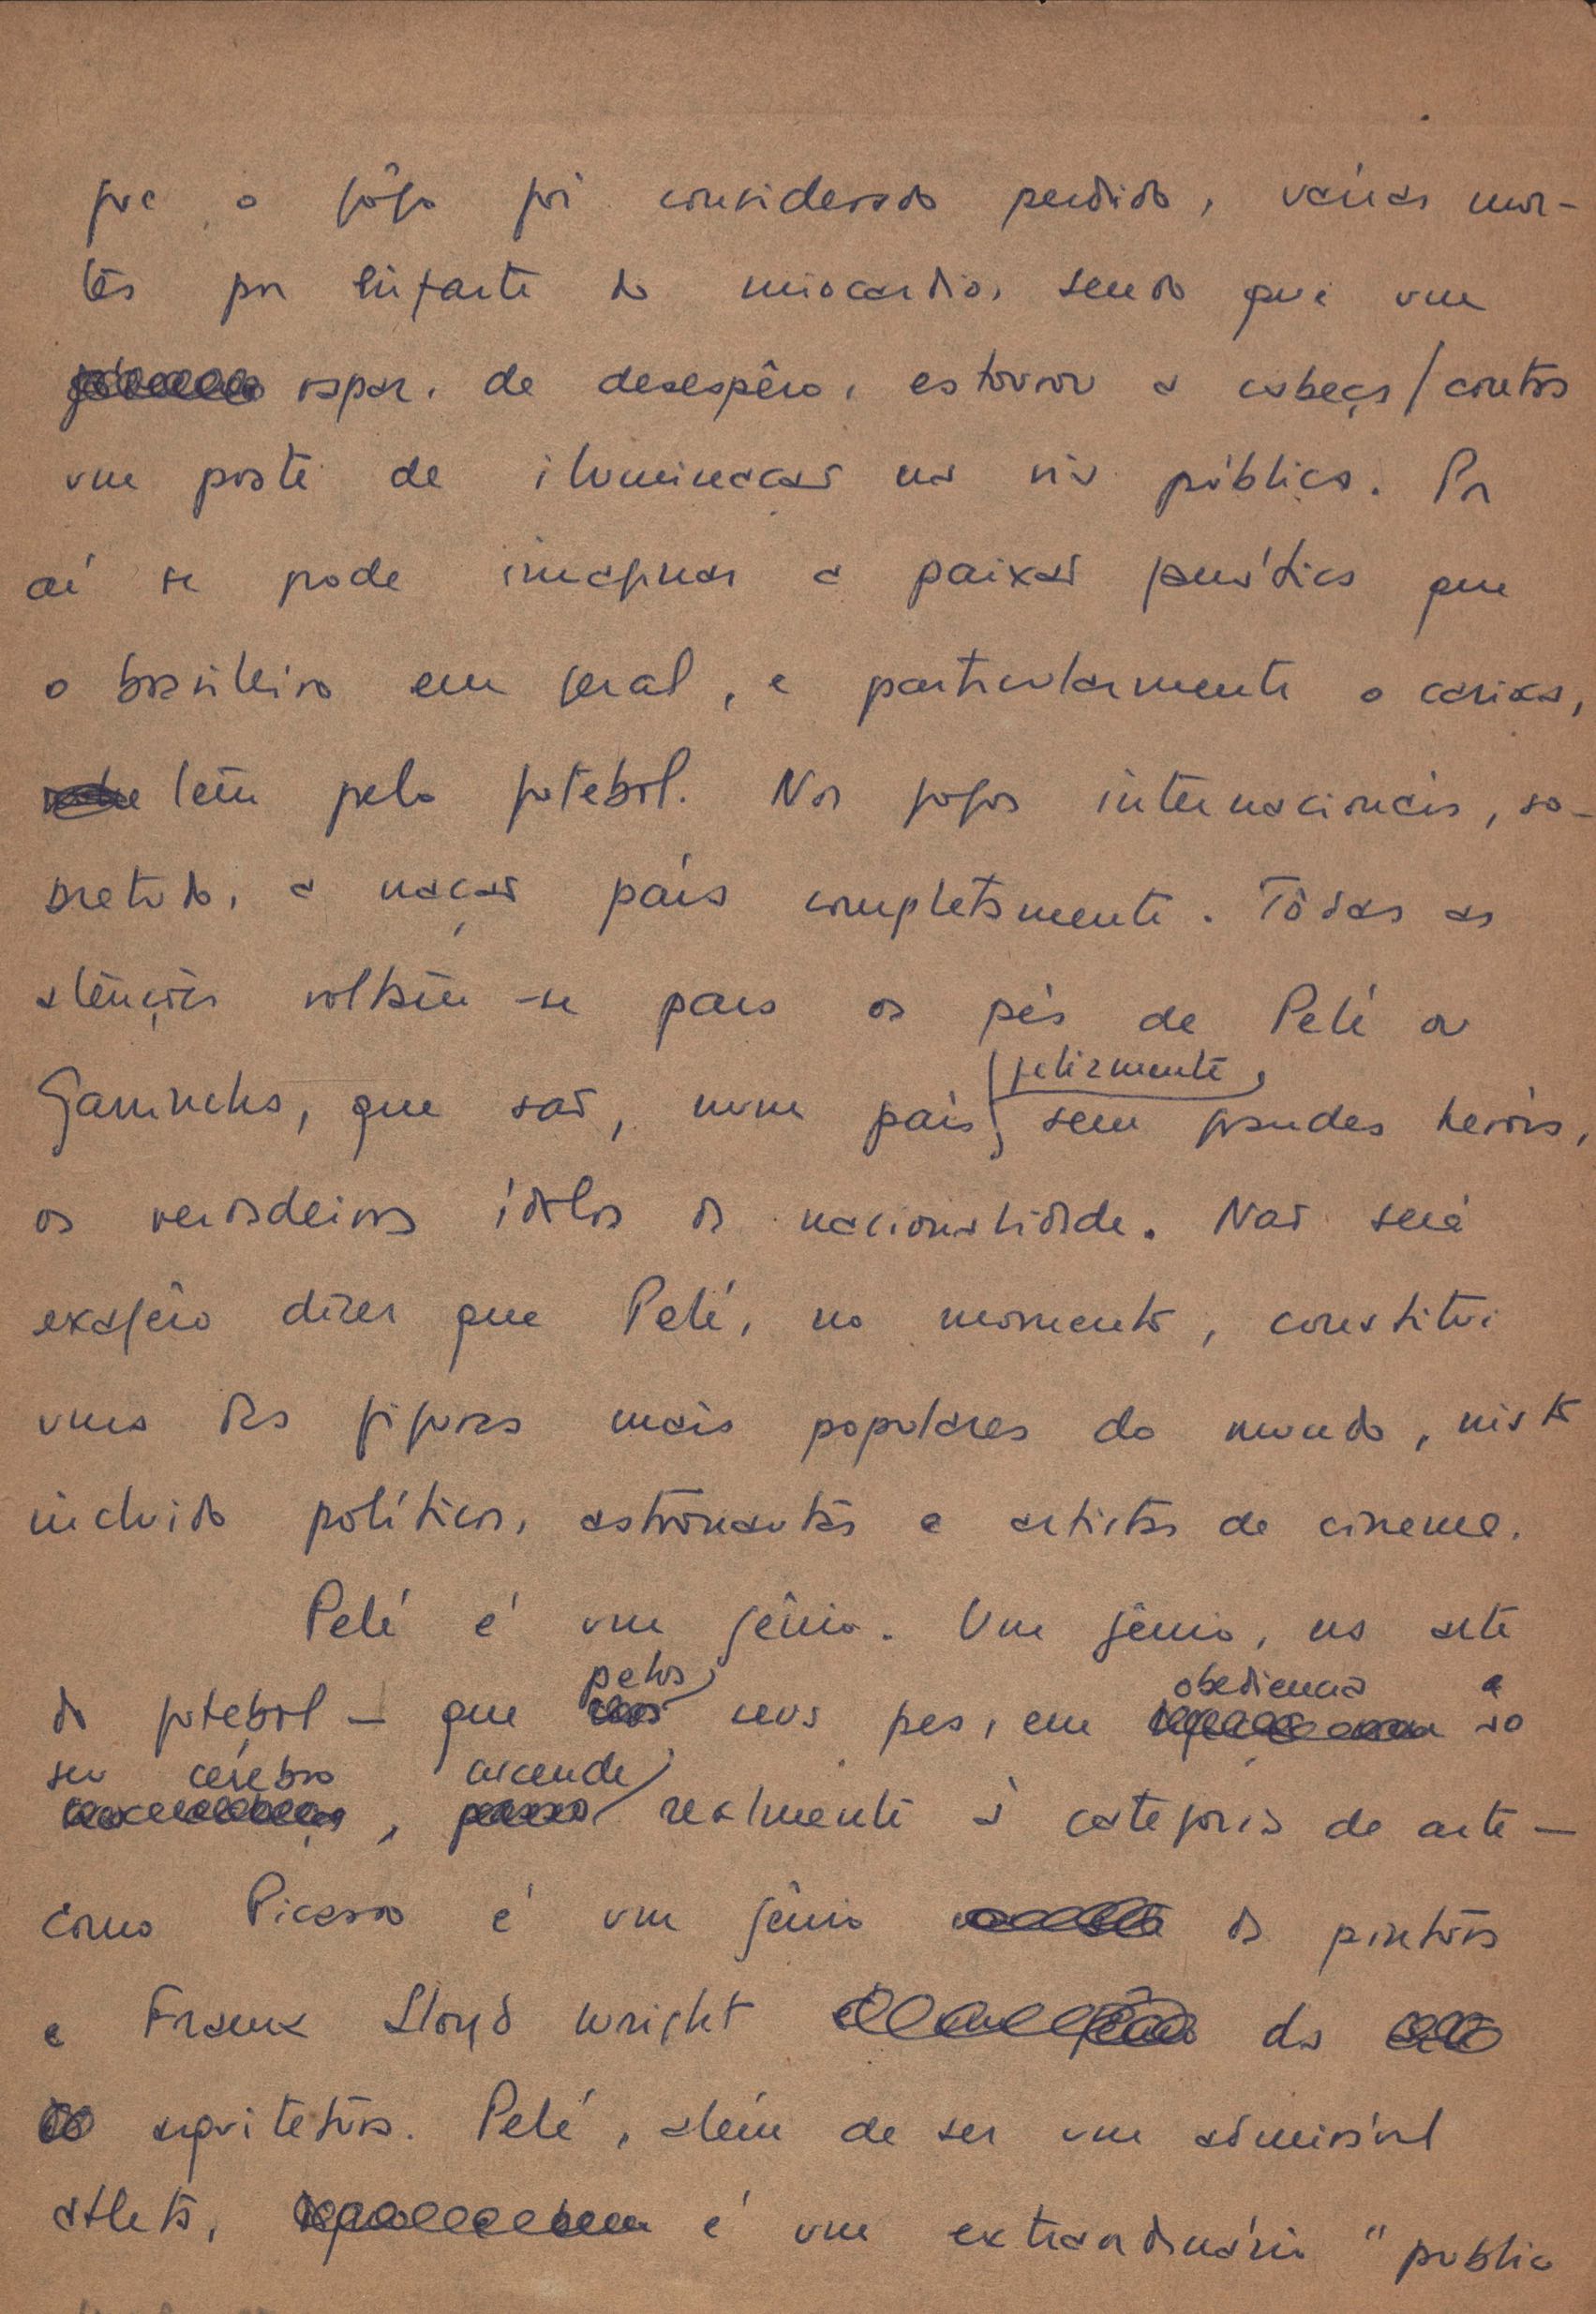 que o jôgo foi considerado perdido, várias mor-
tes por enfarte do miocardio, sendo que um
rapaz, de desespêro, estourou a cabeça / contra
um poste de iluminação na via pública. Por
aí se pode imaginar a paixão fanática que
o brasileiro em geral, e particularmente o carioca,
tem pelo futebol. Nos jogos internacionais, so-
bretudo, a nação pára completamente. Tôdas as
atenções voltam-se para os pés de Pelé ou
felizmente,
Garrincha, que são, num país, sem grandes heróis,
os verdadeiros ídolos da nacionalidade. Não será
exagêro dizer que Pelé, no momento, constitui
uma das figuras mais populares do mundo, nisto
incluido políticos, astronautas e artistas de cinema.
Pelé é um gênio. Um gênio, na arte
pelos obediencia a
do futebol — que seus pes, em so
seu cérebro ascende
, realmente à categoria de arte —
como Picasso é um gênio da pintura
e Frank Lloyd Wright da
arquitetura. Pelé, além de ser um admirável
atleta, é um extraordinário "public